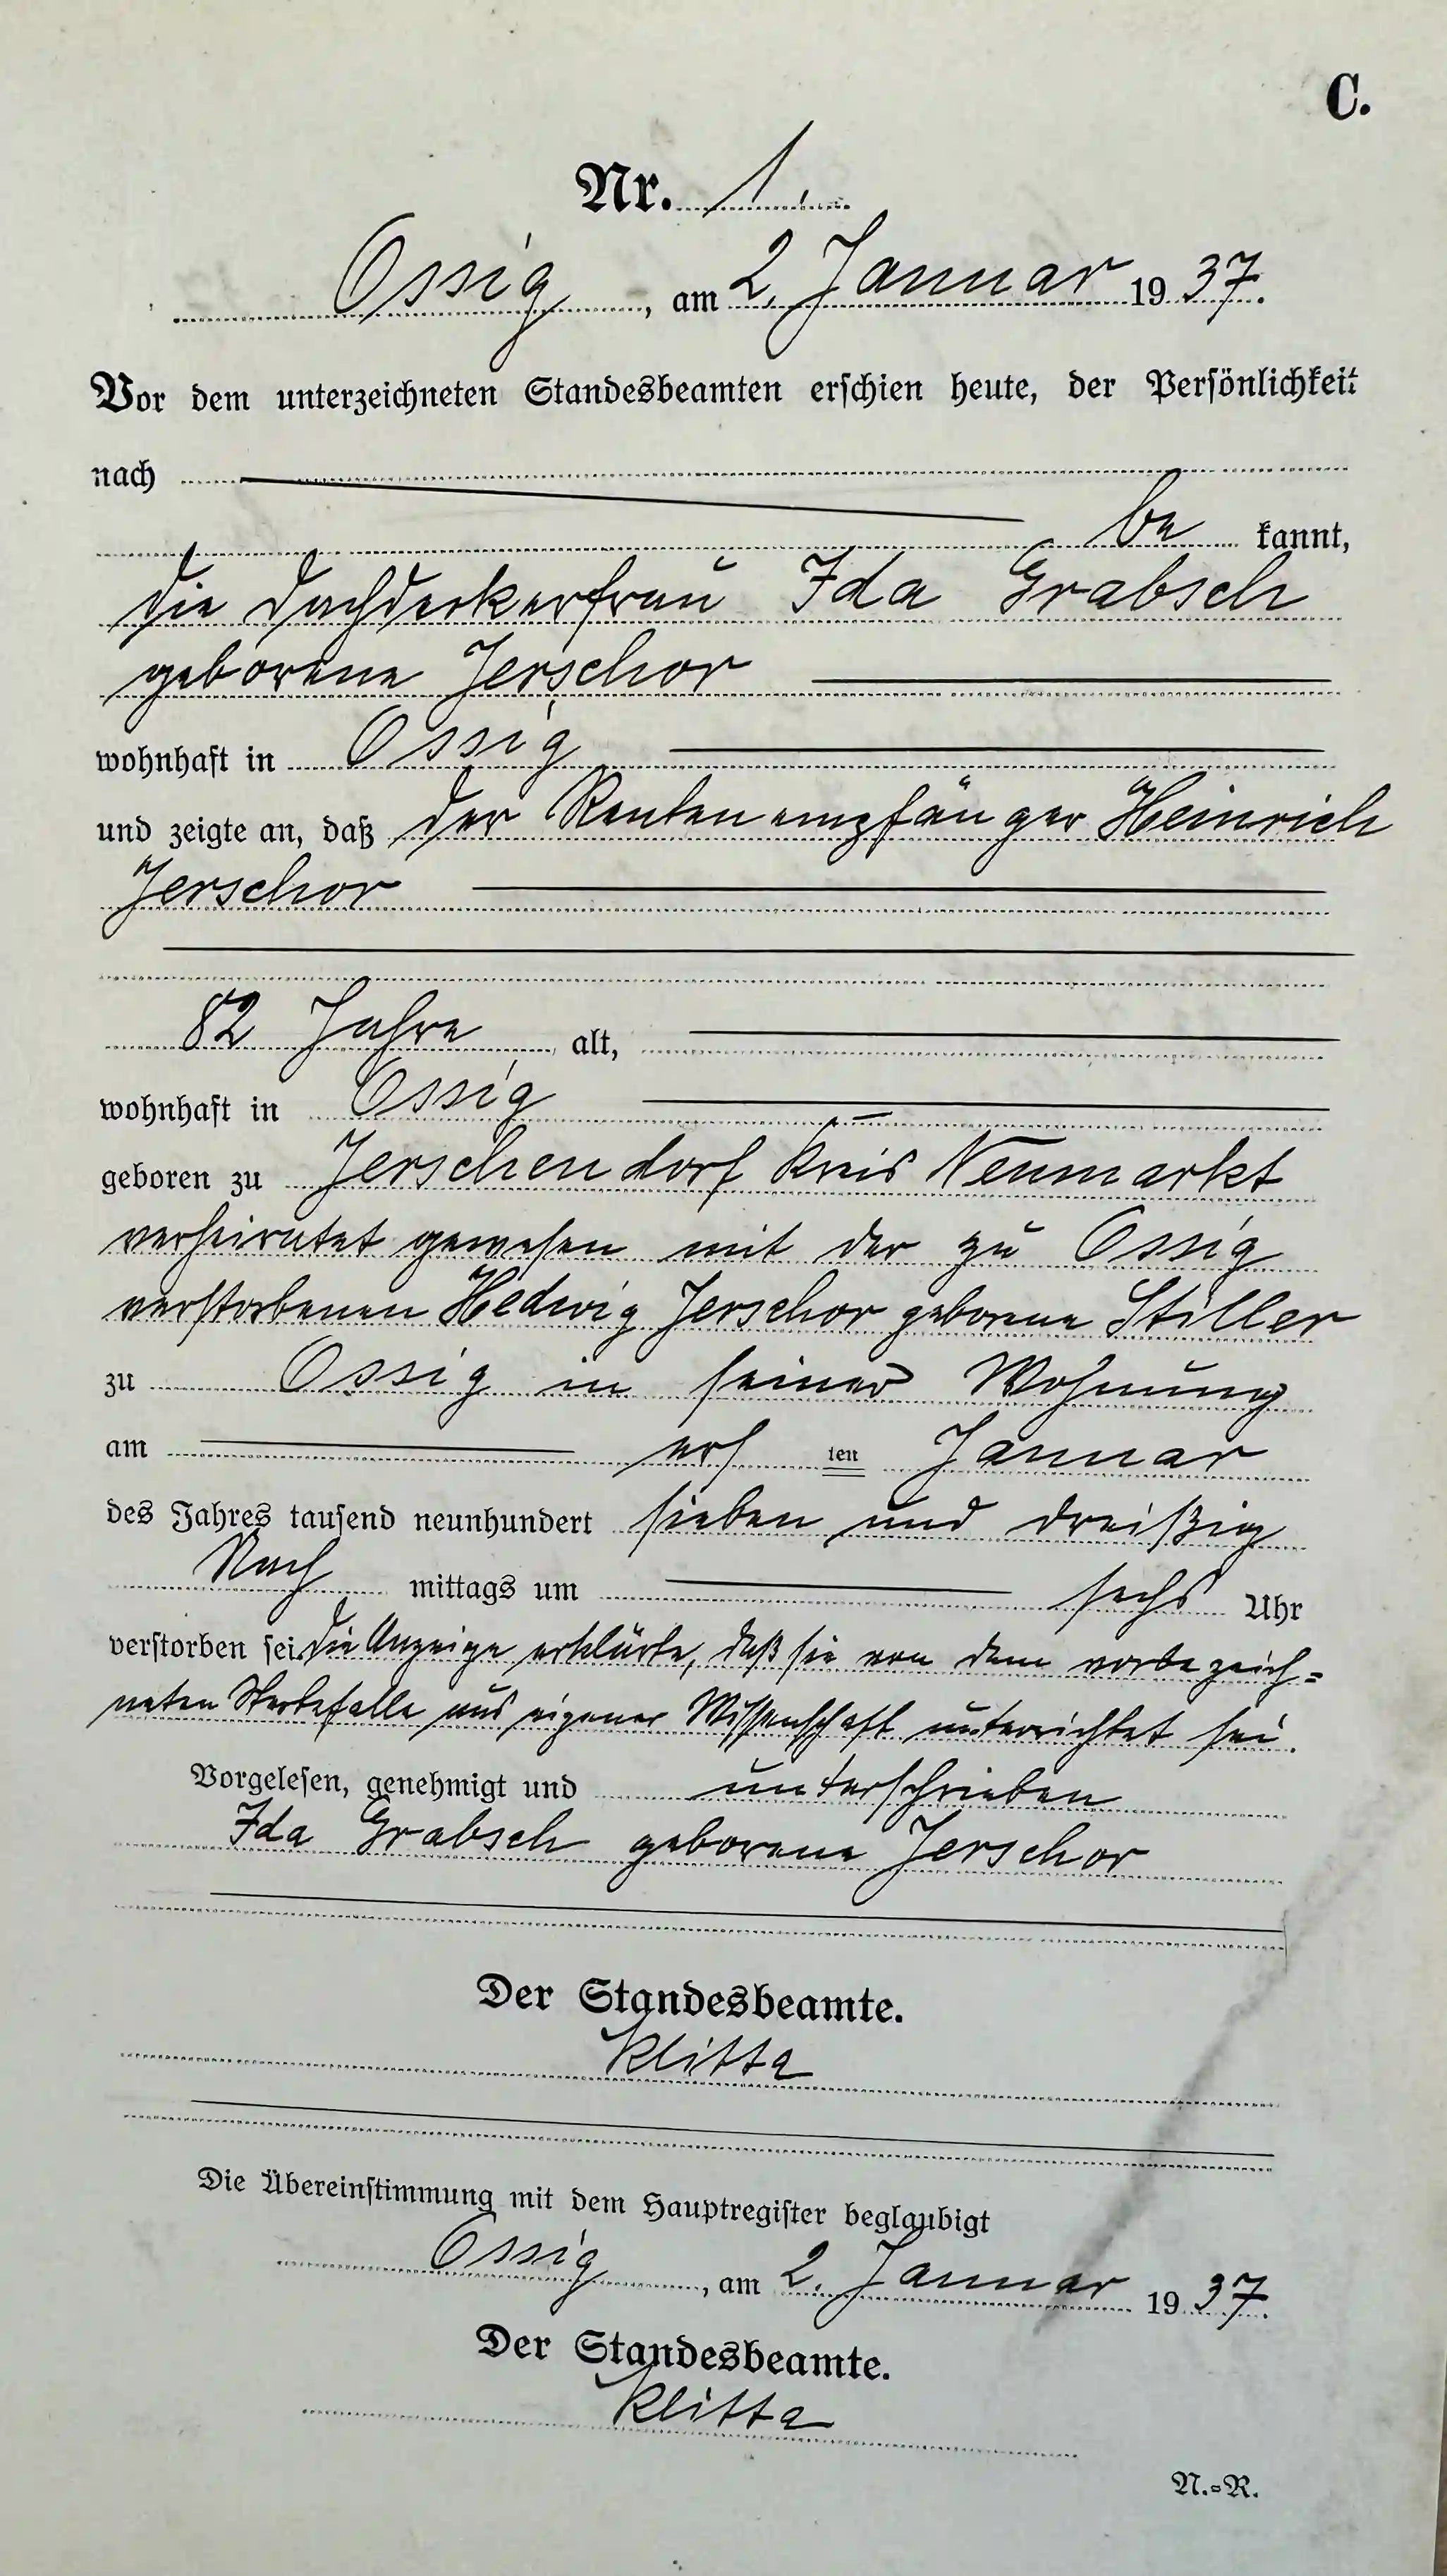 C.
Nr. 1.
Ossig, am 2. Januar 1937.
Vor dem unterzeichneten Standesbeamten erschien heute, der Persönlichkeit
nach
be kannt,
die Dachdeckerfrau Ida Grabsch
geborene Jerschor
wohnhaft in Ossig
und zeigte an, daß der Rentenempfänger Heinrich
Jerschor
82 Jahre alt,
wohnhaft in Ossig
geboren zu Jerschendorf Kreis Neumarkt
verheiratet gewesen mit der zu Ossig
verstorbenen Hedwig Jerschor geborene Stiller
zu Ossig in seiner Wohnung
am ers ten Januar
des Jahres tausend neunhundert sieben und dreißig
Nach mittags um sechs Uhr
verstorben sei. Die Anzeige erklärte, daß sie von dem vorbezeich=
neten Sterbefalle aus eigener Wissenschaft unterrichtet sei.
Vorgelesen, genehmigt und unterschrieben
Ida Grabsch geborene Jerschor
Der Standesbeamte.
Klitta
Die Übereinstimmung mit dem Hauptregister beglaubigt
Ossig, am 2. Januar 1937.
Der Standesbeamte.
Klitta
N.=R.